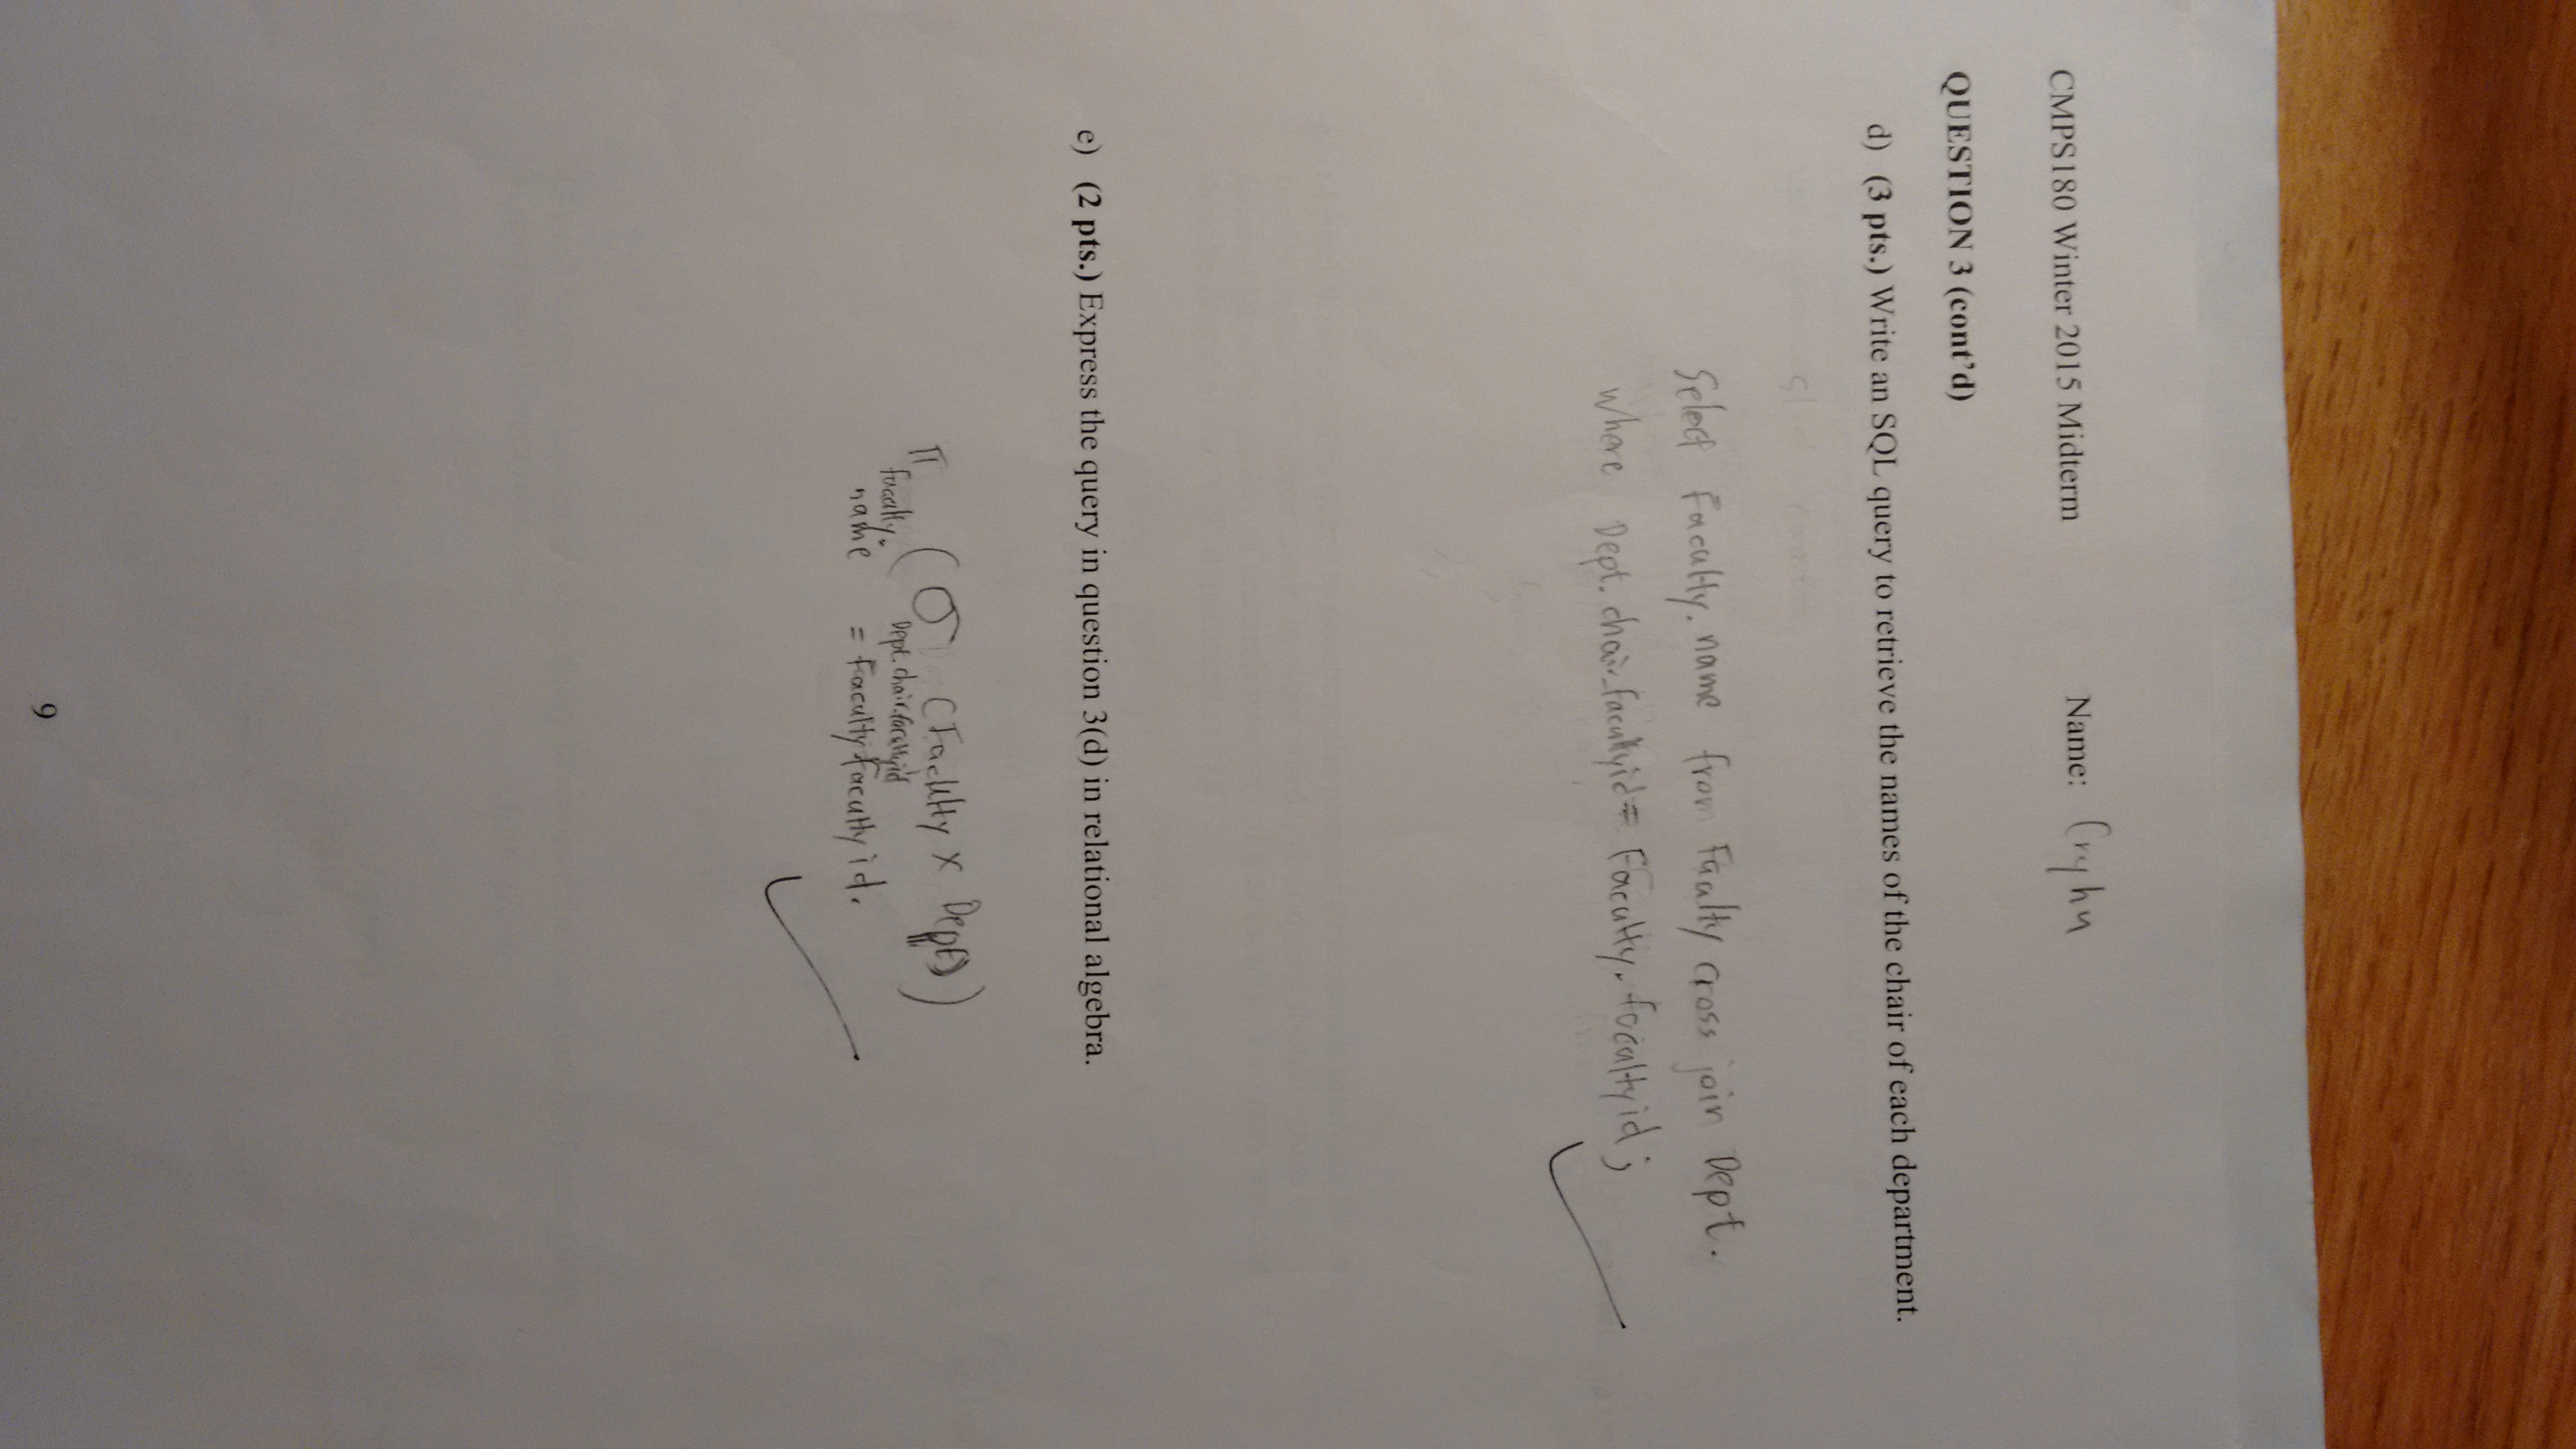 CMPS180 Winter 2015 Midterm Name: Cryhu
QUESTION 3 (cont'd)
d) (3 pts.) Write an SQL query to retrieve the names of the chair of each department.
Select Faculty. name from Faulty cross join Dept.
where Dept. chair_facultyid = Faculty. facultyid ;
e) (2 pts.) Express the query in question 3(d) in relational algebra.
π faculty. name ( σ Dept. chair_facultyid = Faculty.facultyid. (Faculty x Dept) )
9